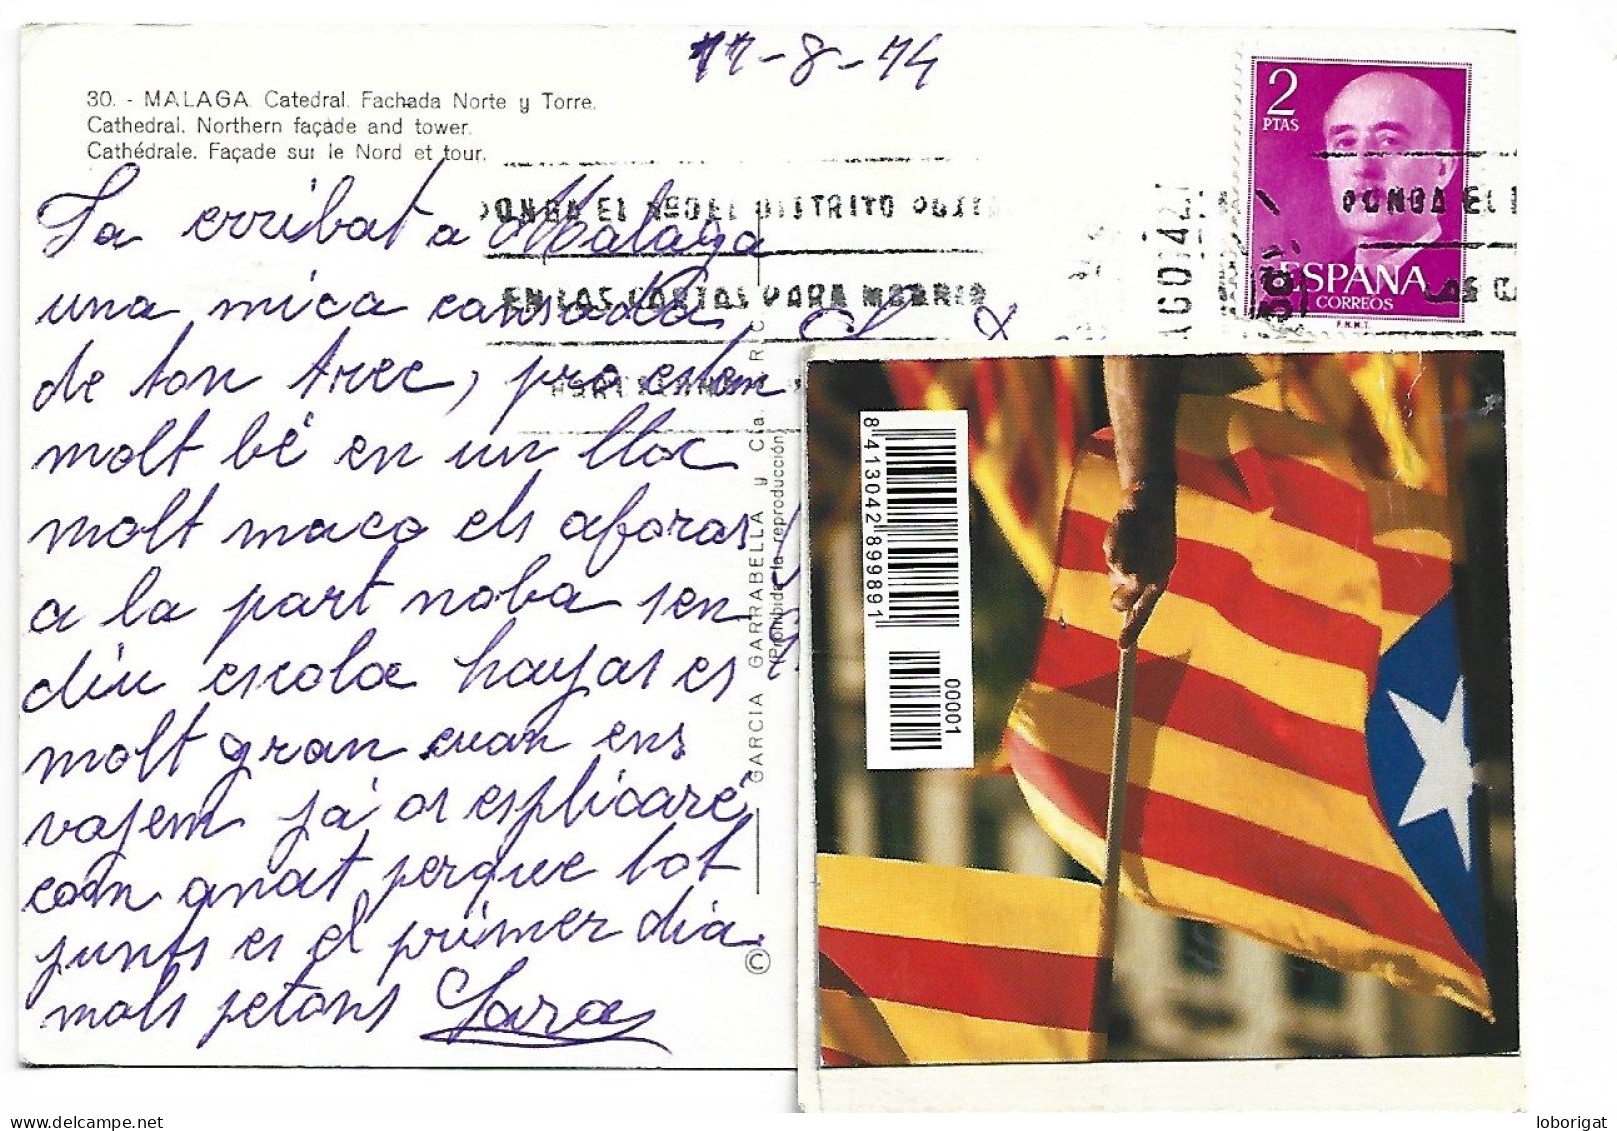 11-8-74
30. - MALAGA. Catedral. Fachada Norte y Torre.
Cathedral. Northern façade and tower.
Cathédrale. Façade sur le Nord et tour.
2
PTAS
ESPAÑA
CORREOS
F.N.M.T.
PONGA EL Nº DEL DISTRITO POSTAL
EN LAS CARTAS PARA MADRID
BARCELONA
PONGA EL
AGO 74
Ja erribat a Malaga
una mica cansada
de ton trec, pro estem
molt bé en un lloc
molt maco els aforas
a la part noba sen
diu escola hayas es
molt gran cuan ens
vajem ja os esplicaré
com anat perque tot
junts es el primer dia
mols petons Sara
© GARCIA GARRABELLA y Cia.
(Prohibida la reproducción)
8 413042 899891
00001
loborigat